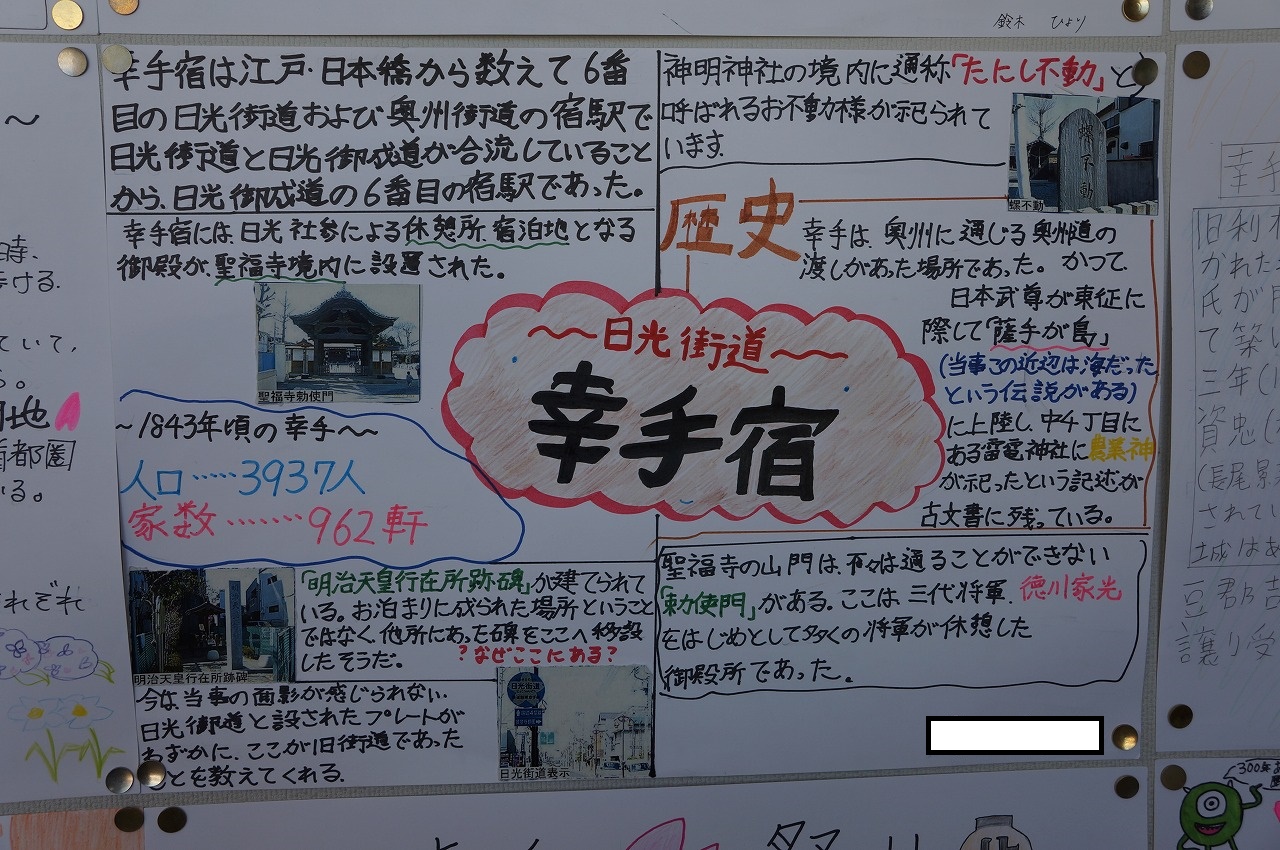 鈴木 ひより
幸手宿は江戸・日本橋から数えて6番
目の日光街道および奥州街道の宿駅で
日光街道と日光御成道が合流していること
から、日光御成道の6番目の宿駅であった。
幸手宿には、日光社参による休憩所、宿泊地となる
御殿が、聖福寺境内に設置された。
聖福寺勅使門
~1843年頃の幸手~
人口……3937人
家数………962軒
「明治天皇行在所跡碑」が建てられて
いる。お泊まりに成られた場所ということ
ではなく、他所にあった碑をここへ移設
したそうだ。
?なぜここにある?
明治天皇行在所跡碑
今は当事の面影が感じられない
日光街道と設されたプレートが
わずかに、ここが旧街道であった
ことを教えてくれる。
日光街道表示
~日光街道~
幸手宿
神明神社の境内に通称「たにし不動」と
呼ばれるお不動様が祀られて
います
螺不動
螺不動
歴史
幸手は、奥州に通じる奥州道の
渡しがあった場所であった。かつて
日本武尊が東征に
際して「薩手が島」
(当事この近辺は海だった
という伝説がある)
に上陸し、中4丁目に
ある雷電神社に農業神
が祀ったという記述が
古文書に残っている。
聖福寺の山門は、百々は通ることができない
「勅使門」がある。ここは三代将軍、徳川家光
をはじめとして多くの将軍が休憩した
御殿所であった。
~
時、
ていて、
地
首都圏
いる。
ぞれぞれ
幸手
旧利根
かれた
氏が
て築い
三年(1
資忠(
(長尾景
されてい
城はあ
豆郡
譲り受
300年